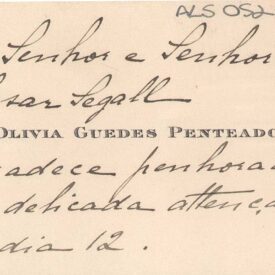 ALS 052
Senhor e Senhor
sar Segall
OLIVIA GUEDES PENTEADO
adece penhora
delicada attenç
dia 12.